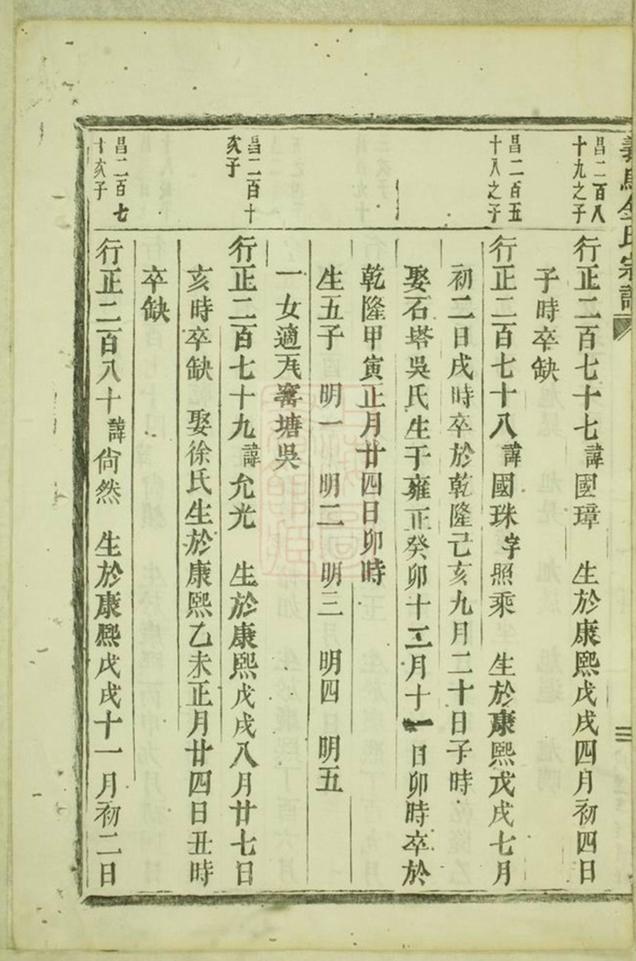 義烏金氏宗譜
昌二百八
十九之子
行正二百七十七諱國璋 生於康熙戊戌四月初四日
子時卒缺
昌二百五
十八之子
行正二百七十八諱國珠字照乘 生於康熙戊戌七月
初二日戌時卒於乾隆己亥九月二十日子時
娶石塔吳氏生于雍正癸卯十二月十一日卯時卒於
乾隆甲寅正月廿四日卯時
生五子 明一 明二 明三 明四 明五
一女適窰塘吳
昌二百十
亥子
行正二百七十九諱允光 生於康熙戊戌八月廿七日
亥時卒缺 娶徐氏生於康熙乙未正月廿四日丑時
卒缺
昌二百七
十亥子
行正二百八十諱尙然 生於康熙戊戌十一月初二日